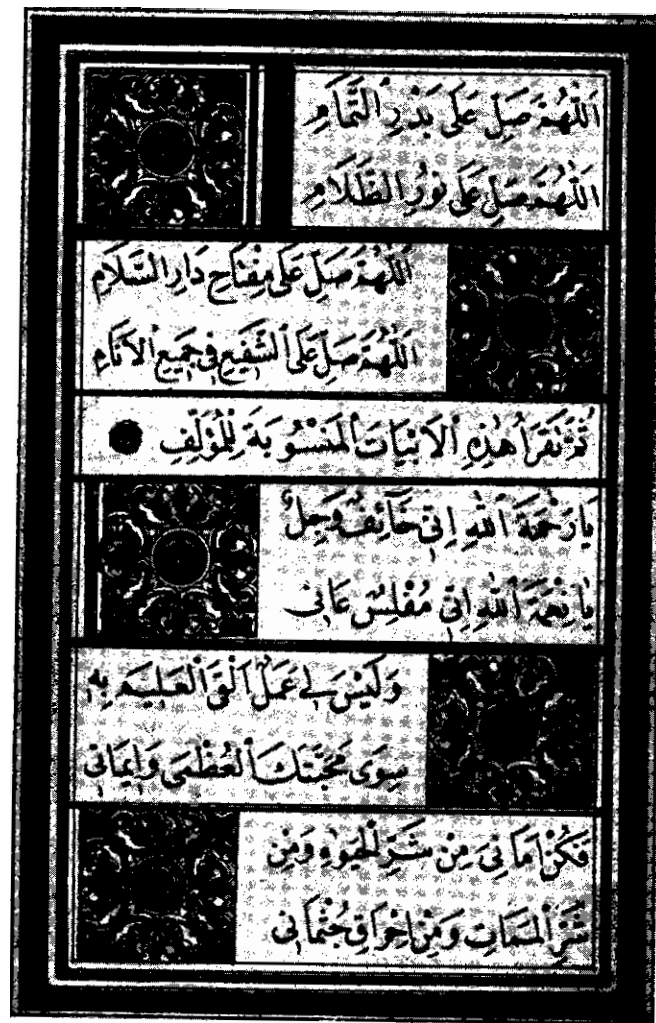 اَللّٰهُمَّ صَلِّ عَلَى بَدْرِ التَّمَامِ
اَللّٰهُمَّ صَلِّ عَلَى نُورِ الظَّلَامِ
اَللّٰهُمَّ صَلِّ عَلَى مِفْتَاحِ دَارِ السَّلَامِ
اَللّٰهُمَّ صَلِّ عَلَى الشَّفِيعِ فِى جَمِيعِ الْاَنَامِ
ثُمَّ تَقْرَأُ هٰذِهِ الْاَبْيَاتَ الْمَنْسُوبَةَ لِلْمُؤَلِّفِ
يَارَحْمَةَ اللهِ اِنِّى خَآئِفٌ وَجِلٌ
يَا نِعْمَةَ اللهِ اِنِّى مُفْلِسٌ عَانِى
وَلَيْسَ لِى عَمَلٌ اَلْقَى الْعَلِيمَ بِهِ
سِوَى مَحَبَّتِكَ الْعُظْمَى وَاِيمَانِى
فَكُنْ اَمَانِىَ مِنْ شَرِّ الْحَيٰوةِ وَمِنْ
شَرِّ الْمَمَاتِ وَمِنْ اِحْرَاقِ جُثْمَانِى